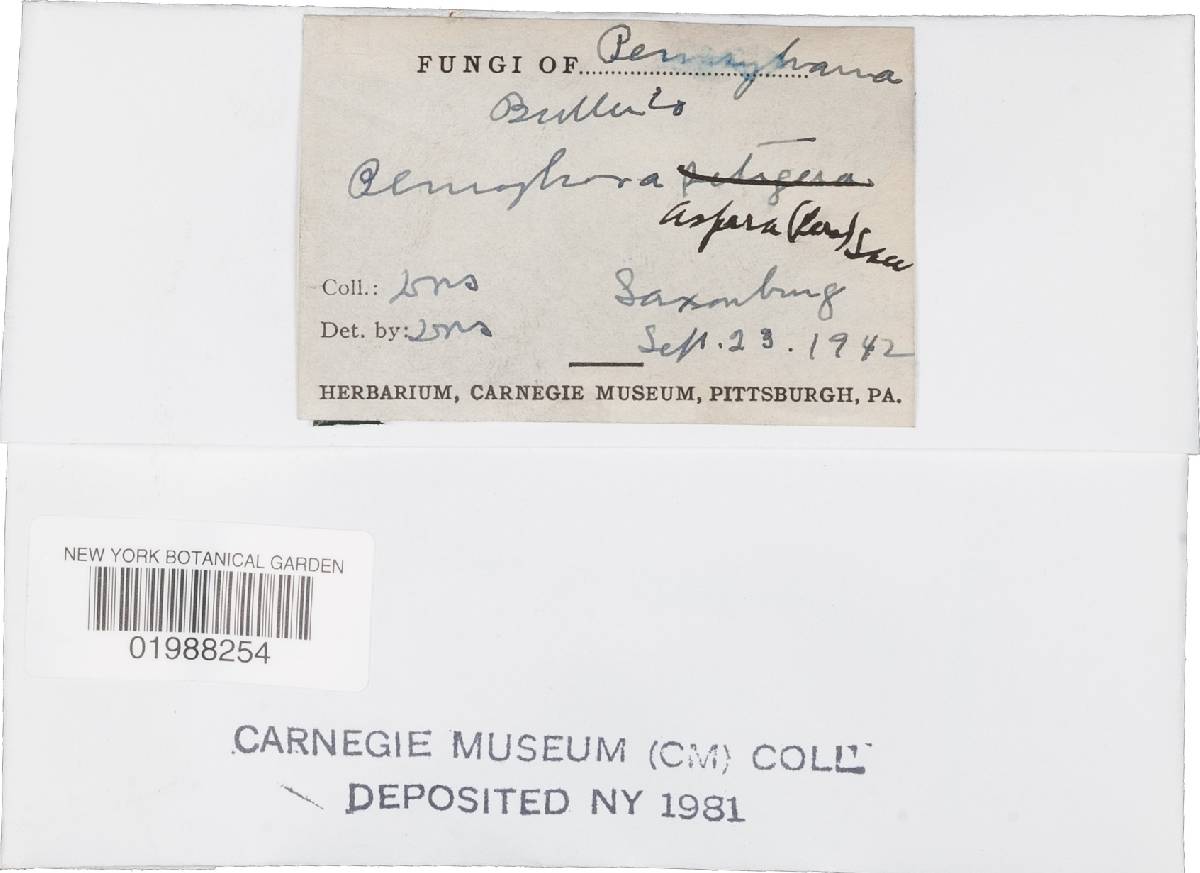 FUNGI OF Pennsylvania
Butler Co
Peniophora setigera
aspera (Pers) Sacc
Coll.: LKH
Saxonburg
Det. by: LKH
Sept. 23. 1942
HERBARIUM, CARNEGIE MUSEUM, PITTSBURGH, PA.
NEW YORK BOTANICAL GARDEN
01988254
CARNEGIE MUSEUM (CM) COLL.
DEPOSITED NY 1981